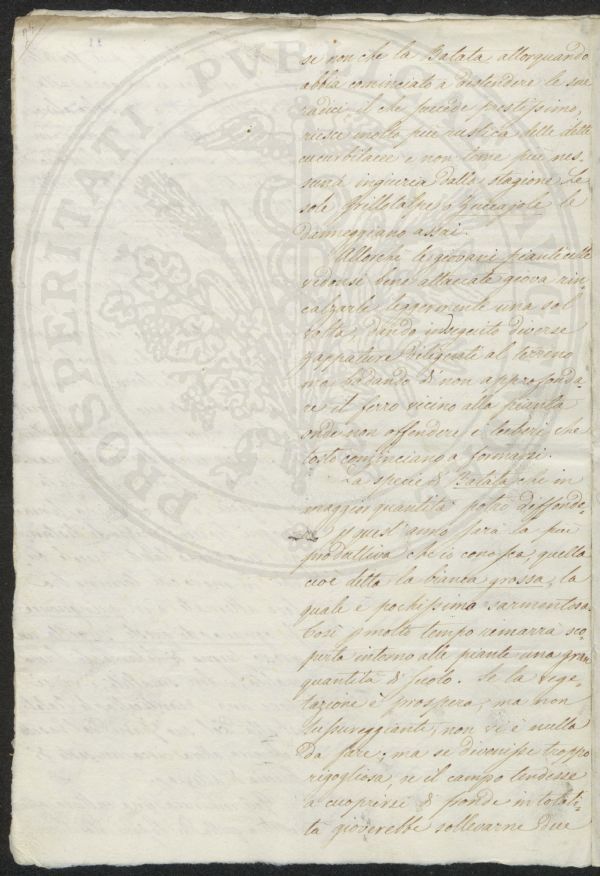 se non che la Batata allorquando
abbia cominciato a distendere le sue
radici il che succede prestissimo,
riesce molto più rustica delle dette
cucurbitacee e non teme più nes-
suna ingiuria dalla stagione Le
sole Grillotalpe o Zuccajole le
danneggiano assai.
Allorchè le giovani pianticelle
vedonsi bene attaccate giova rin-
calzarle leggermente una sol
volta, dando in seguito diverse
zappature al terreno
ma badando di non approfonda-
re il ferro vicino alla pianta
onde non offendere i tuberi, che
tosto cominciano a formarsi.
La specie di Batata che in
maggior quantità potrò diffonde-
re quest'anno sarà la più
produttiva che io conosca, quella
cioè detta la bianca grossa, la
quale è pochissimo sarmentosa.
Così p molto tempo rimarrà sco-
perta intorno alle piante una gran
quantità di suolo. Se la vege-
tazione è prospera, ma non
lussureggiante, non vi è nulla
da fare; ma se divenisse troppo
rigogliosa, e il campo tendesse
a cuoprirsi di fronde in totali-
tà gioverebbe sollevarne due
PROSPERITATI PVBLICAE